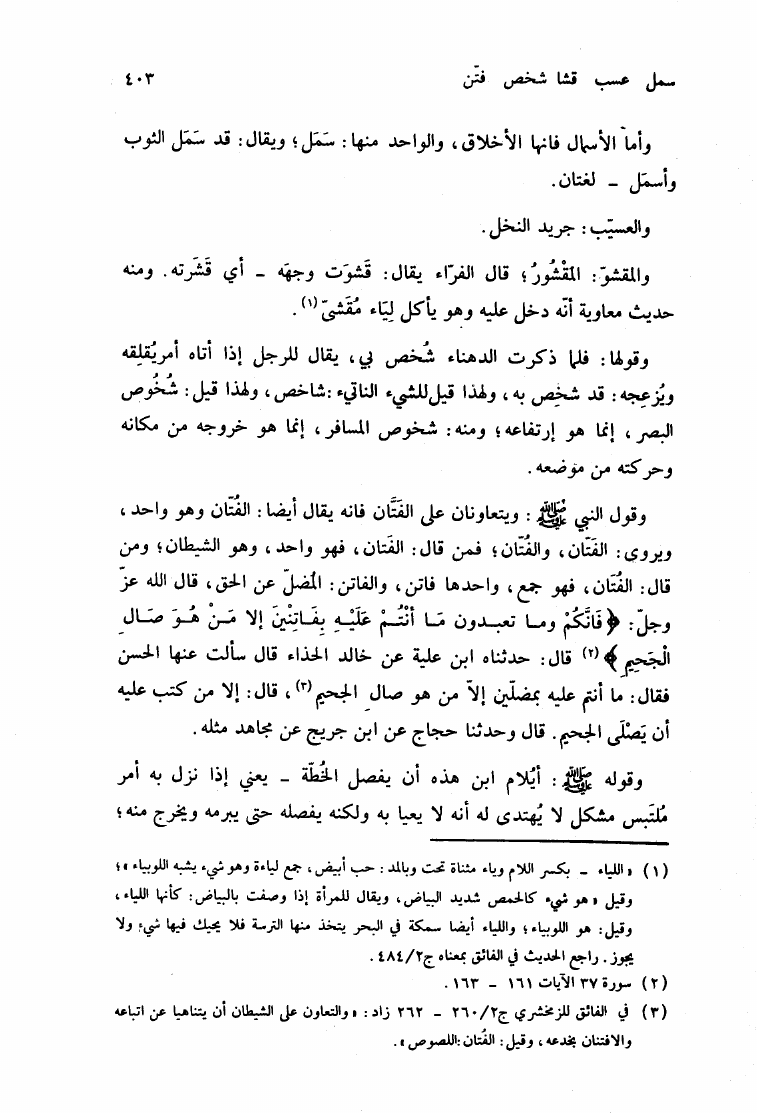 سمل عسب قشا شخص فتّن ٤٠٣
وأما الأسمال فانها الأخلاق، والواحد منها: سَمَل؛ ويقال: قد سَمَل الثوب
وأسمَل - لغتان.
والعسيّب: جريد النخل.
والمقشوّ: المَقْشُورُ؛ قال الفرّاء يقال: قَشوَت وجهَه - أي قَشَرته. ومنه
حديث معاوية أنّه دخل عليه وهو يأكل لِيَاء مُقَشىّ(١).
وقولها: فلما ذكرت الدهناء شُخص بي، يقال للرجل إذا أتاه أمر يُقلِقه
ويُزعِجه: قد شخِص به، ولهذا قيل للشيء الناتيء: شاخص، ولهذا قيل: شُخُوص
البصر، إنما هو إرتفاعه؛ ومنه: شخوص المسافر، إنما هو خروجه من مكانه
وحركته من موضعه.
وقول النبي ﷺ: ويتعاونان على الفَتَّان فانه يقال أيضا: الفُتّان وهو واحد،
ويروى: الفَتّان، والفُتّان؛ فمن قال: الفَتان، فهو واحد، وهو الشيطان؛ ومن
قال: الفُتَّان، فهو جمع، واحدها فاتن، والفاتن: المُضلّ عن الحق، قال الله عزّ
وجلّ: ﴿فَانَّكُمْ وما تعبدون مَا أَنْتُمْ عَلَيْهِ بِفَاتِنْينَ إلا مَنْ هُوَ صَالِ
الْجَحِيمِ﴾(٢) قال: حدثناه ابن علية عن خالد الحذاء قال سألت عنها الحسن
فقال: ما أنتم عليه بمضلّين إلاّ من هو صالِ الجحيم(٣)، قال: إلا من كتب عليه
أن يَصْلَى الجحيم. قال وحدثنا حجاج عن ابن جريج عن مجاهد مثله.
وقوله ﷺ: أيُلام ابن هذه أن يفصل الخُطّة - يعني إذا نزل به أمر
مُلتَبِس مشكل لا يُهتدى له أنه لا يعيا به ولكنه يفصله حتى يبرمه ويخرج منه؛
(١) « اللياء - بكسر اللام وياء مثناة تحت وبالمد: حب أبيض، جمع لياءة وهو شيء يشبه اللوبياء »؛
وقيل « هو شيء كالحمص شديد البياض، ويقال للمرأة إذا وصفت بالبياض: كأنها اللياء،
وقيل: هو اللوبياء؛ واللياء أيضا سمكة في البحر يتخذ منها الترسة فلا يحيك فيها شيء ولا
يجوز. راجع الحديث في الفائق بمعناه ج٢/٤٨٤.
(٢) سورة ٣٧ الآيات ١٦١ - ١٦٣.
(٣) في الفائق للزمخشري ج٢/٢٦٠ - ٢٦٢ زاد: « والتعاون على الشيطان أن يتناهيا عن اتباعه
والافتنان بخدعه، وقيل: الفُتان: اللصوص ».